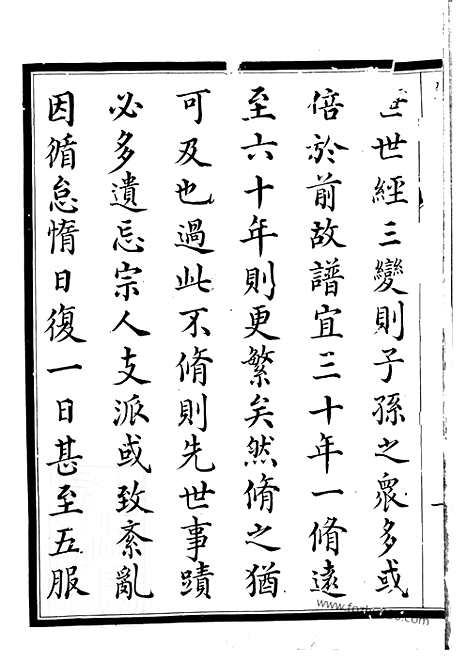 世經三變則子孫之衆多或
倍於前故譜宜三十年一脩遠
至六十年則更繁矣然脩之猶
可及也過此不脩則先世事蹟
必多遺忘宗人支派或致紊亂
因循怠惰日復一日甚至五服